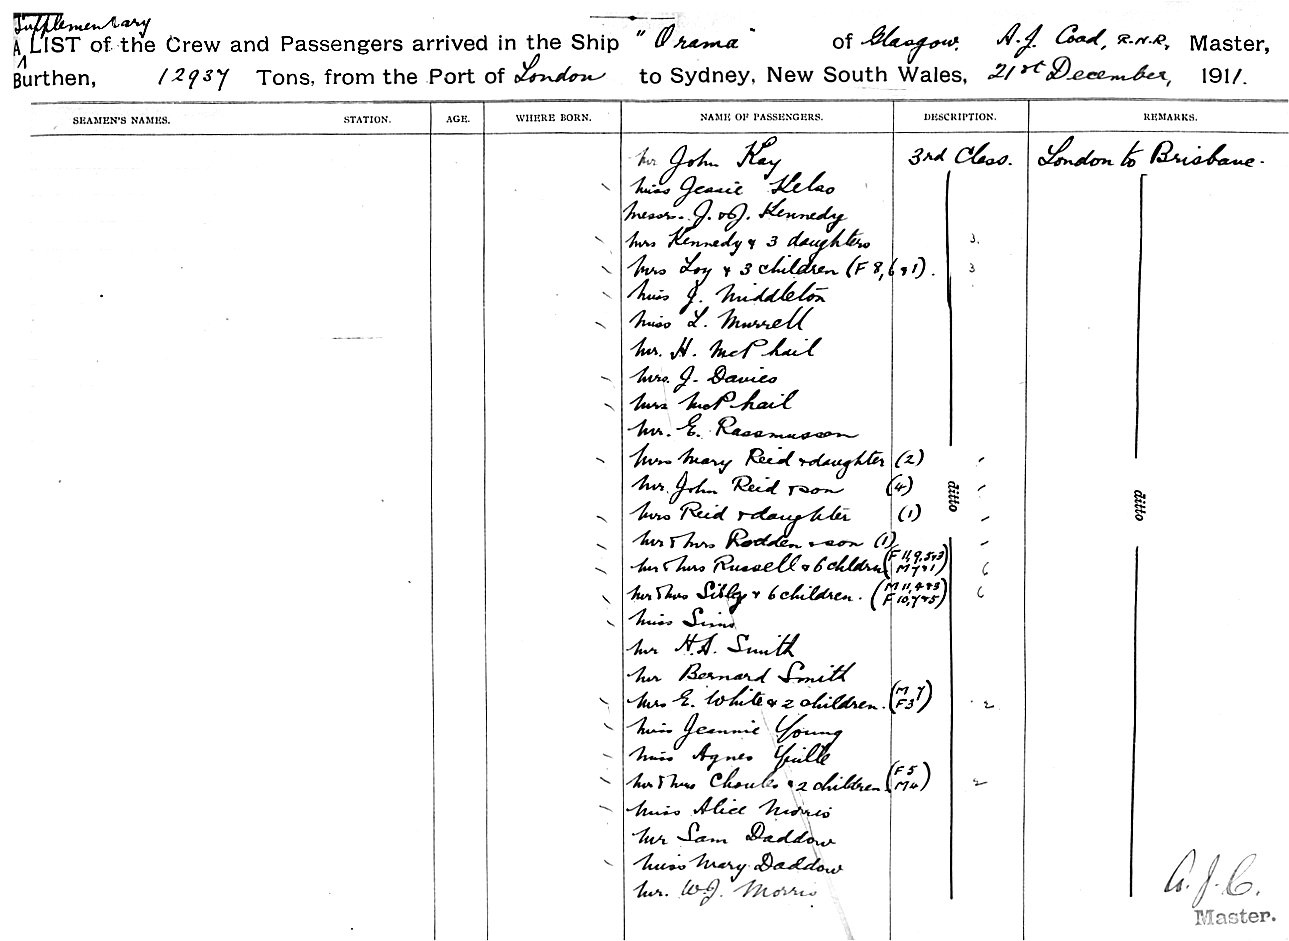 Supplementary
A LIST of the Crew and Passengers arrived in the Ship "Orama" of Glasgow, A. J. Coad, R.N.R, Master,
Burthen, 12937 Tons, from the Port of London to Sydney, New South Wales, 21st December, 1911.
SEAMEN'S NAMES. STATION. AGE. WHERE BORN. NAME OF PASSENGERS. DESCRIPTION. REMARKS.
Mr John Kay 3rd Class. London to Brisbane.
Miss Jessie Kelso
Messrs. J. & J. Kennedy
Mrs Kennedy & 3 daughters 3.
Mrs Loy & 3 children (F 8, 6 & 1). 3
Miss J. Middleton
Miss L. Murrell
Mr. H. McPhail
Mrs. J. Davies
Mrs McPhail
Mr. E. Rassmusson
Mrs Mary Reid & daughter (2)
Mr. John Reid & son (4) ditto ditto
Mrs Reid & daughter (1)
Mr & Mrs Rodden & son (1)
Mr & Mrs Russell & 6 chldren (F 11, 9, 5 & 3 M 7 & 1) 6
Mr & Mrs Sibly & 6 children. (M 11, 4 & 3 F 10, 7 & 5) 6
Miss Sims
Mr H. A. Smith
Mr Bernard Smith
Mrs E. White & 2 children. (M 7 F 3) 2
Miss Jeannie Young
Miss Agnes Yuille
Mr & Mrs & 2 children. (F 5 M 4) 2
Miss Alice Morris
Mr Sam Daddow
Miss Mary Daddow
Mr. W. J. Morris
A. J. C.
Master.